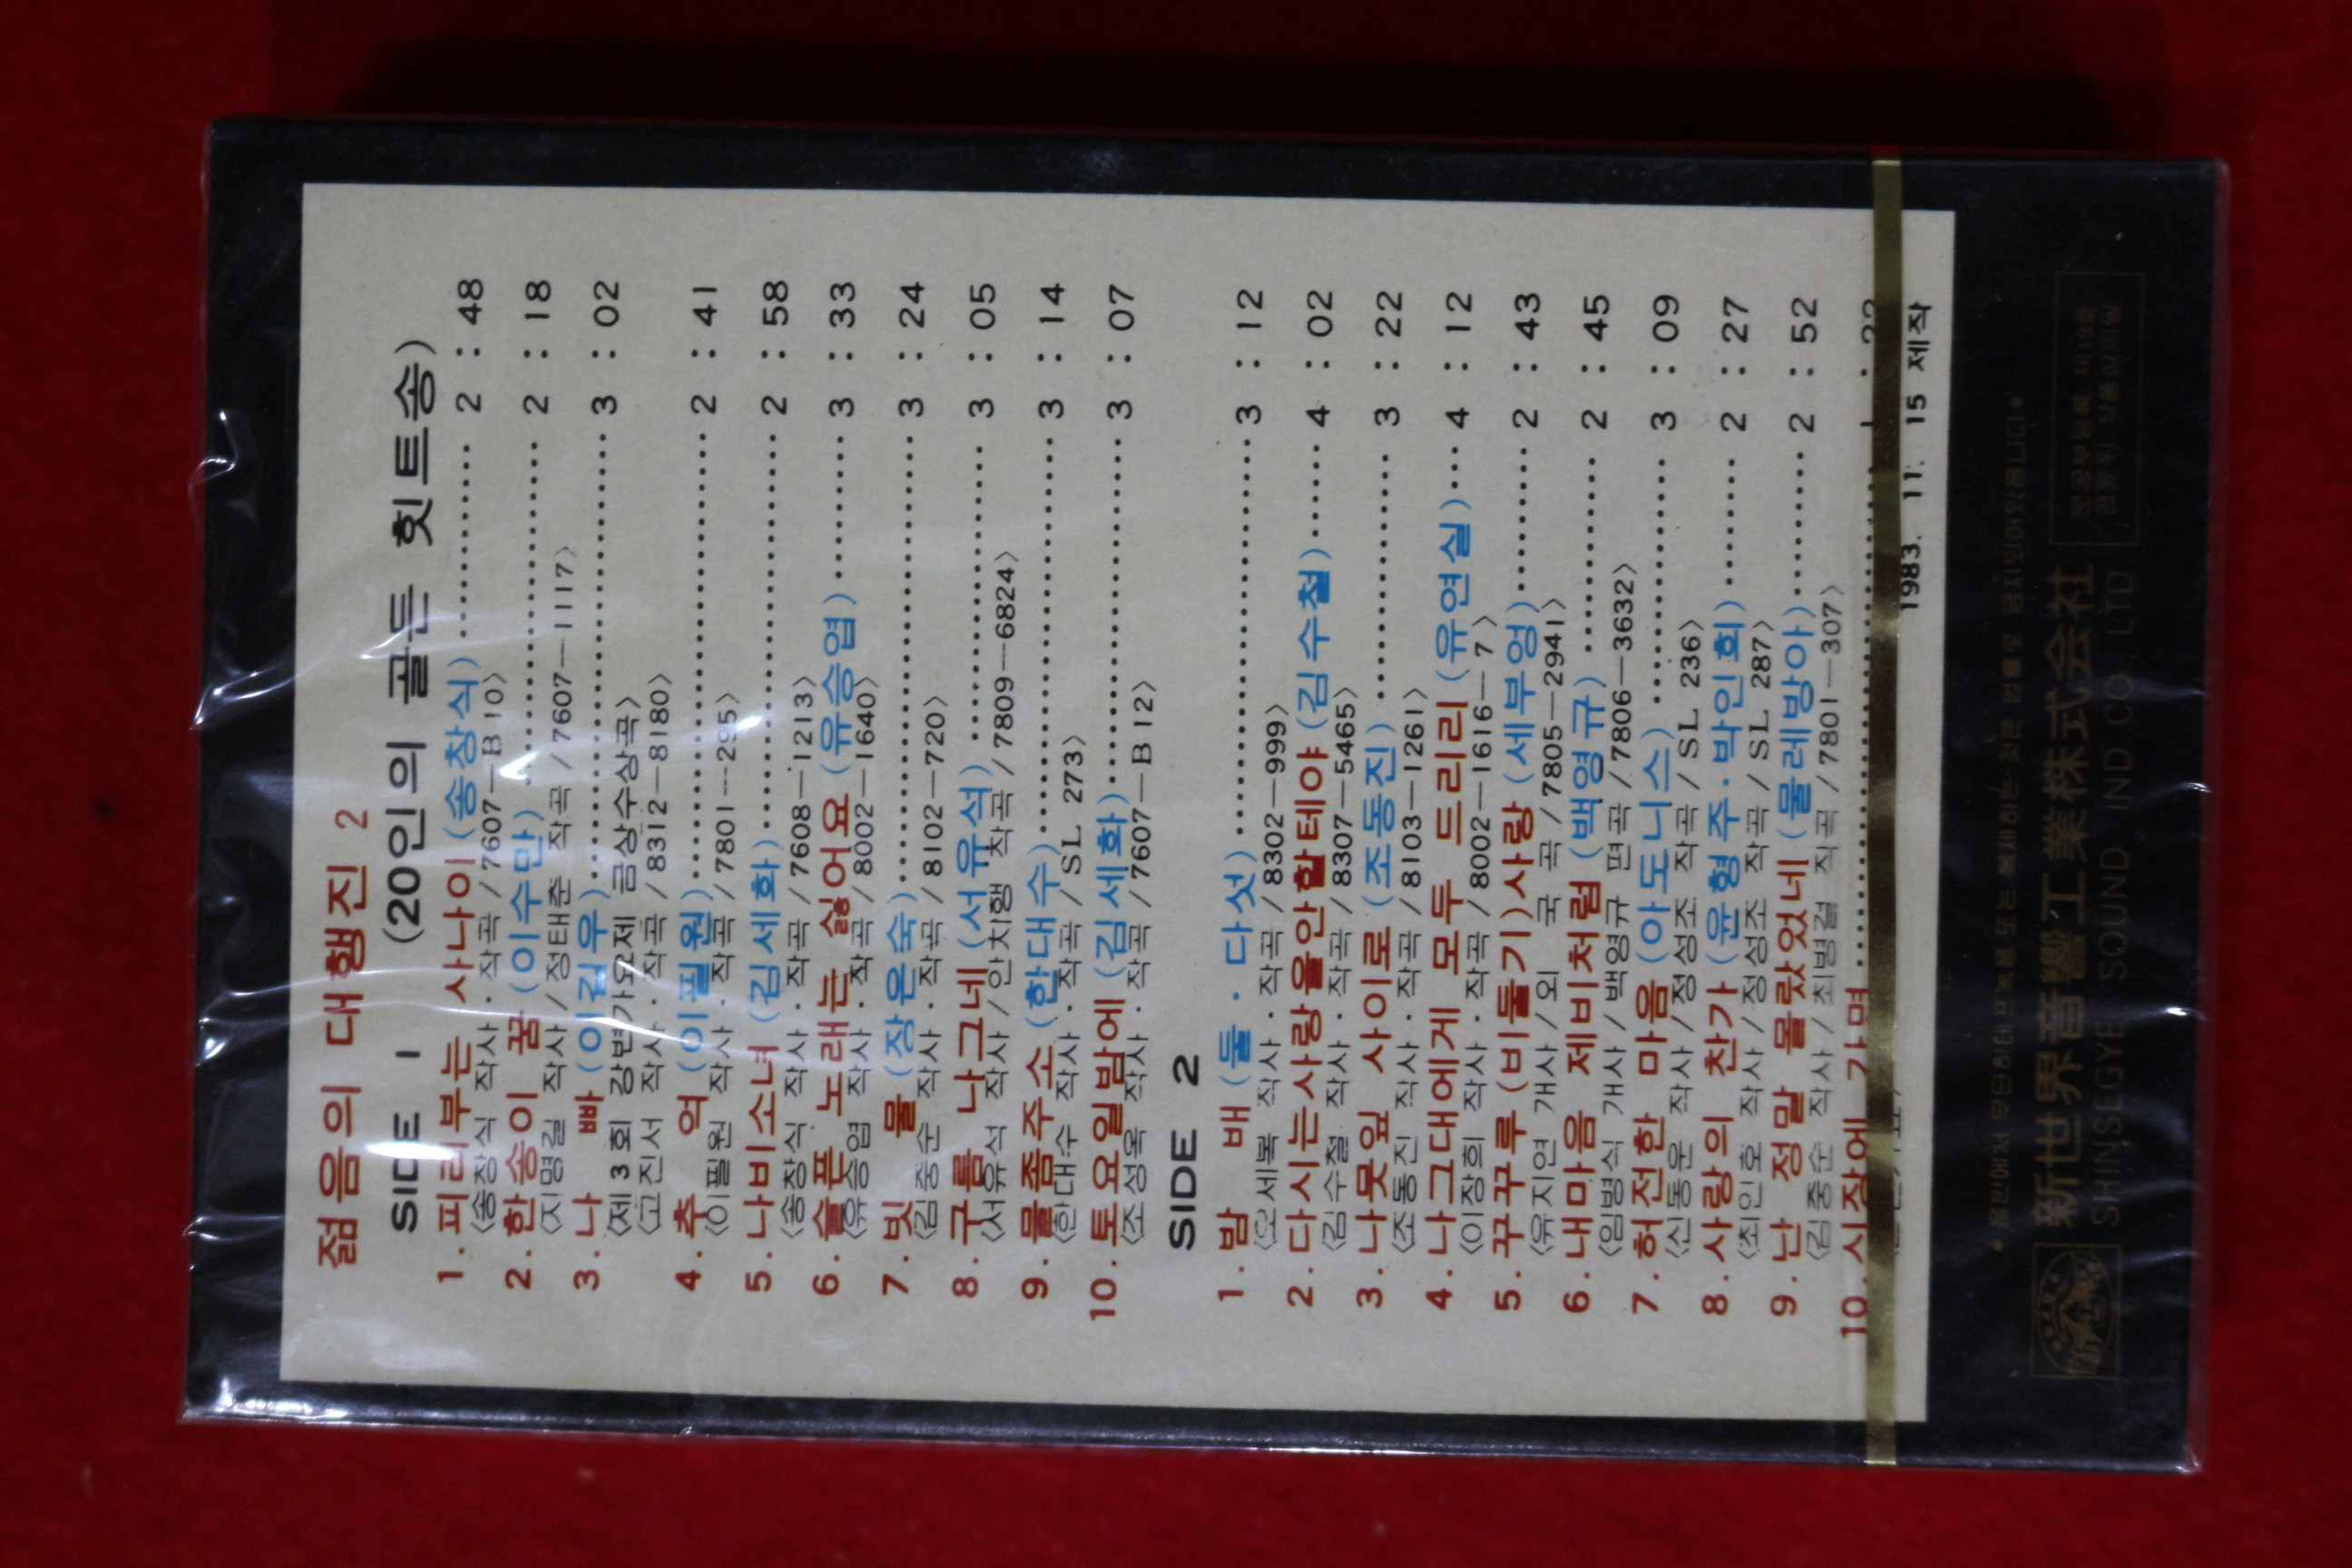 젊음의 대행진 2
SIDE 1 (20인의 골든 힛트송)
1. 피리부는 사나이 (송창식) 2 : 48
〈송창식 작사 · 작곡 / 7607—B 10〉
2. 한송이 꿈 (이수만) 2 : 18
〈지명길 작사 / 정태준 작곡 / 7607—1117〉
3. 나 빠 (이김우) 3 : 02
〈제 3 회 강변가요제 금상수상곡〉
〈고진서 작사 · 작곡 / 8312—8180〉
4. 추 억 (이필원) 2 : 41
〈이필원 작사 · 작곡 / 7801—295〉
5. 나비소녀 (김세화) 2 : 58
〈송창식 작사 · 작곡 / 7608—1213〉
6. 슬픈 노래는 싫어요 (유승엽) 3 : 33
〈유승엽 작사 · 작곡 / 8002—1640〉
7. 빗 물 (장은숙) 3 : 24
〈김중순 작사 · 작곡 / 8102—720〉
8. 구름 나그네 (서유석) 3 : 05
〈서유석 작사 / 안치행 작곡 / 7809—6824〉
9. 물좀주소 (한대수) 3 : 14
〈한대수 작사 · 작곡 / SL 273〉
10. 토요일밤에 (김세화) 3 : 07
〈조성욱 작사 · 작곡 / 7607—B 12〉
SIDE 2
1. 밤 배 (둘 · 다섯) 3 : 12
〈오세복 작사 · 작곡 / 8302—999〉
2. 다시는사랑을안할테야 (김수철) 4 : 02
〈김수철 작사 · 작곡 / 8307—5465〉
3. 나뭇잎 사이로 (조동진) 3 : 22
〈조동진 작사 · 작곡 / 8103—1261〉
4. 나그대에게 모두 드리리 (유연실) 4 : 12
〈이장희 작사 · 작곡 / 8002—1616—7〉
5. 꾸꾸루 (비둘기) 사랑 (세부엉) 2 : 43
〈유지연 개사 / 외 국 곡 / 7805—2941〉
6. 내마음 제비처럼 (백영규) 2 : 45
〈임병식 개사 / 백영규 편곡 / 7806—3632〉
7. 허전한 마음 (아도니스) 3 : 09
〈신동운 작사 / 정성조 작곡 / SL 236〉
8. 사랑의 찬가 (윤형주 · 박인희) 2 : 27
〈최인호 작사 / 정성조 작곡 / SL 287〉
9. 난 정말 몰랐었네 (물레방아) 2 : 52
〈김중순 작사 / 최병걸 작곡 / 7801—307〉
10. 시장에 가면
1983. 11. 15 제작
* 음반에서 무단히 테프 녹음 또는 복제하는 것은 법률로 금지되어있읍니다 *
新世界音響工業株式会社
SHINSEGYE SOUND IND. CO. LTD